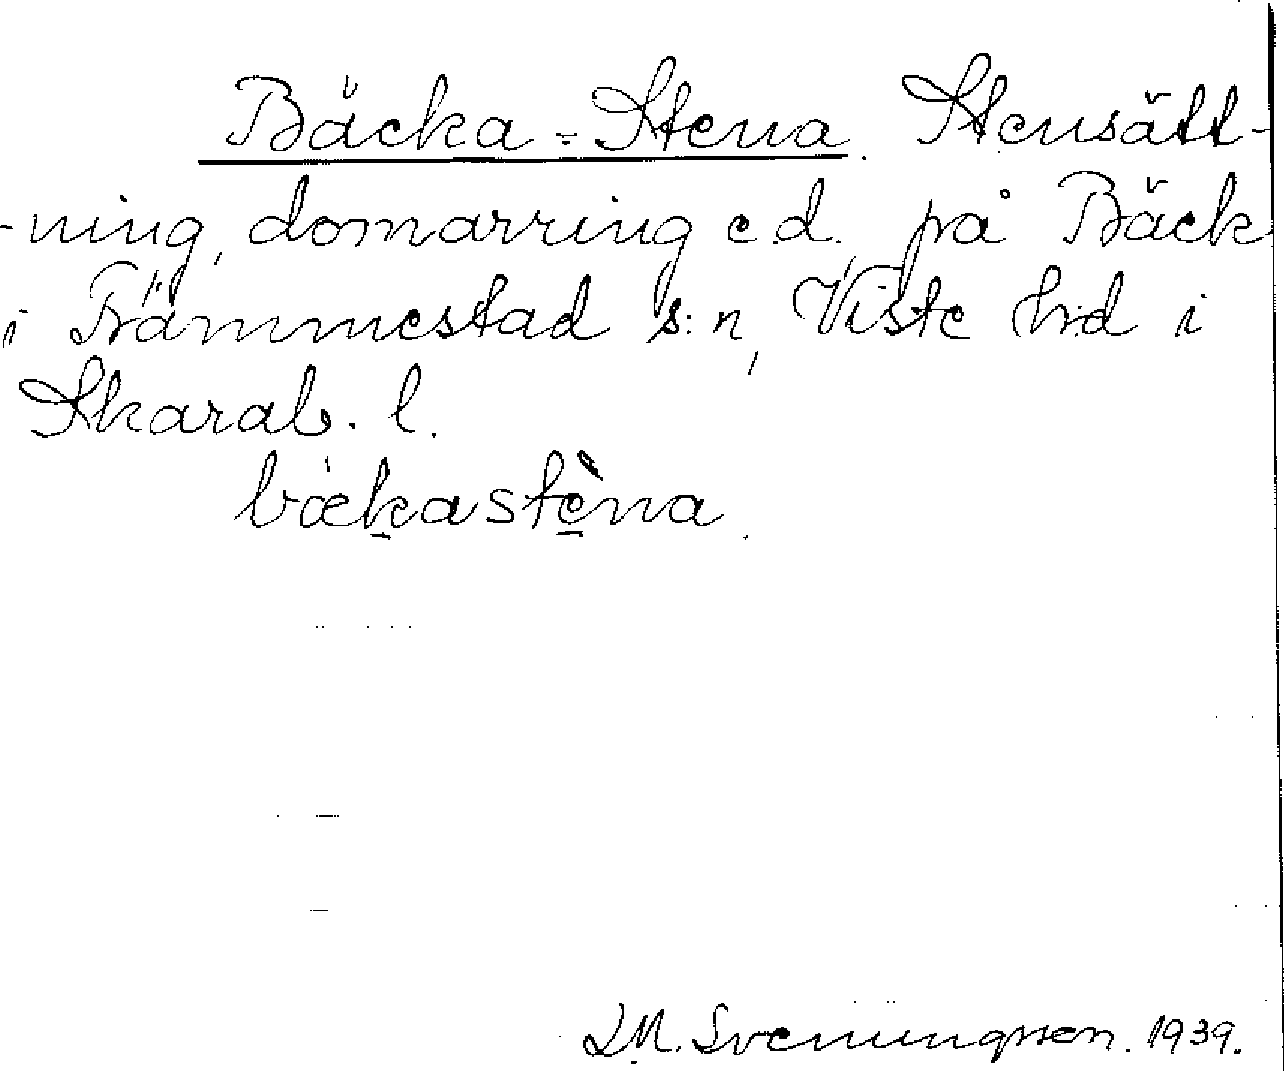 Bäcka-Stena. Stensätt-
-ning, domarring e.d. på Bäck
i Främmestad s:n, Viste hd i
Skarab. l.
bækastèna.
L.M. Svenungsson. 1939.